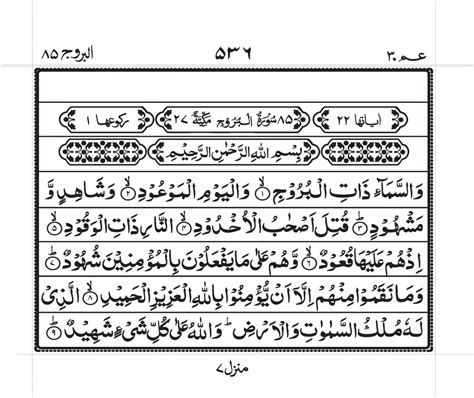 عـم ٣٠ ٥٣٦ البروج ٨٥
اٰیاتها ٢٢ ٨٥ سُوْرَةُ الْبُرُوْجِ مَکِّیَّةٌ ٢٧ رکوعها ١
بِسْمِ اللهِ الرَّحْمٰنِ الرَّحِیْمِ
وَالسَّمَآءِ ذَاتِ الْبُرُوْجِ ۙ﴿١﴾ وَالْیَوْمِ الْمَوْعُوْدِ ۙ﴿٢﴾ وَشَاهِدٍ وَّ
مَشْهُوْدٍ ؕ﴿٣﴾ قُتِلَ اَصْحٰبُ الْاُخْدُوْدِ ۙ﴿٤﴾ النَّارِ ذَاتِ الْوَقُوْدِ ۙ﴿٥﴾
اِذْ هُمْ عَلَیْهَا قُعُوْدٌ ۙ﴿٦﴾ وَّهُمْ عَلٰی مَا یَفْعَلُوْنَ بِالْمُؤْمِنِیْنَ شُهُوْدٌ ؕ﴿٧﴾
وَمَا نَقَمُوْا مِنْهُمْ اِلَّاۤ اَنْ یُّؤْمِنُوْا بِاللهِ الْعَزِیْزِ الْحَمِیْدِ ۙ﴿٨﴾ الَّذِیْ
لَهٗ مُلْكُ السَّمٰوٰتِ وَالْاَرْضِ ؕ وَاللهُ عَلٰی کُلِّ شَیْءٍ شَهِیْدٌ ؕ﴿٩﴾
منزل ٧